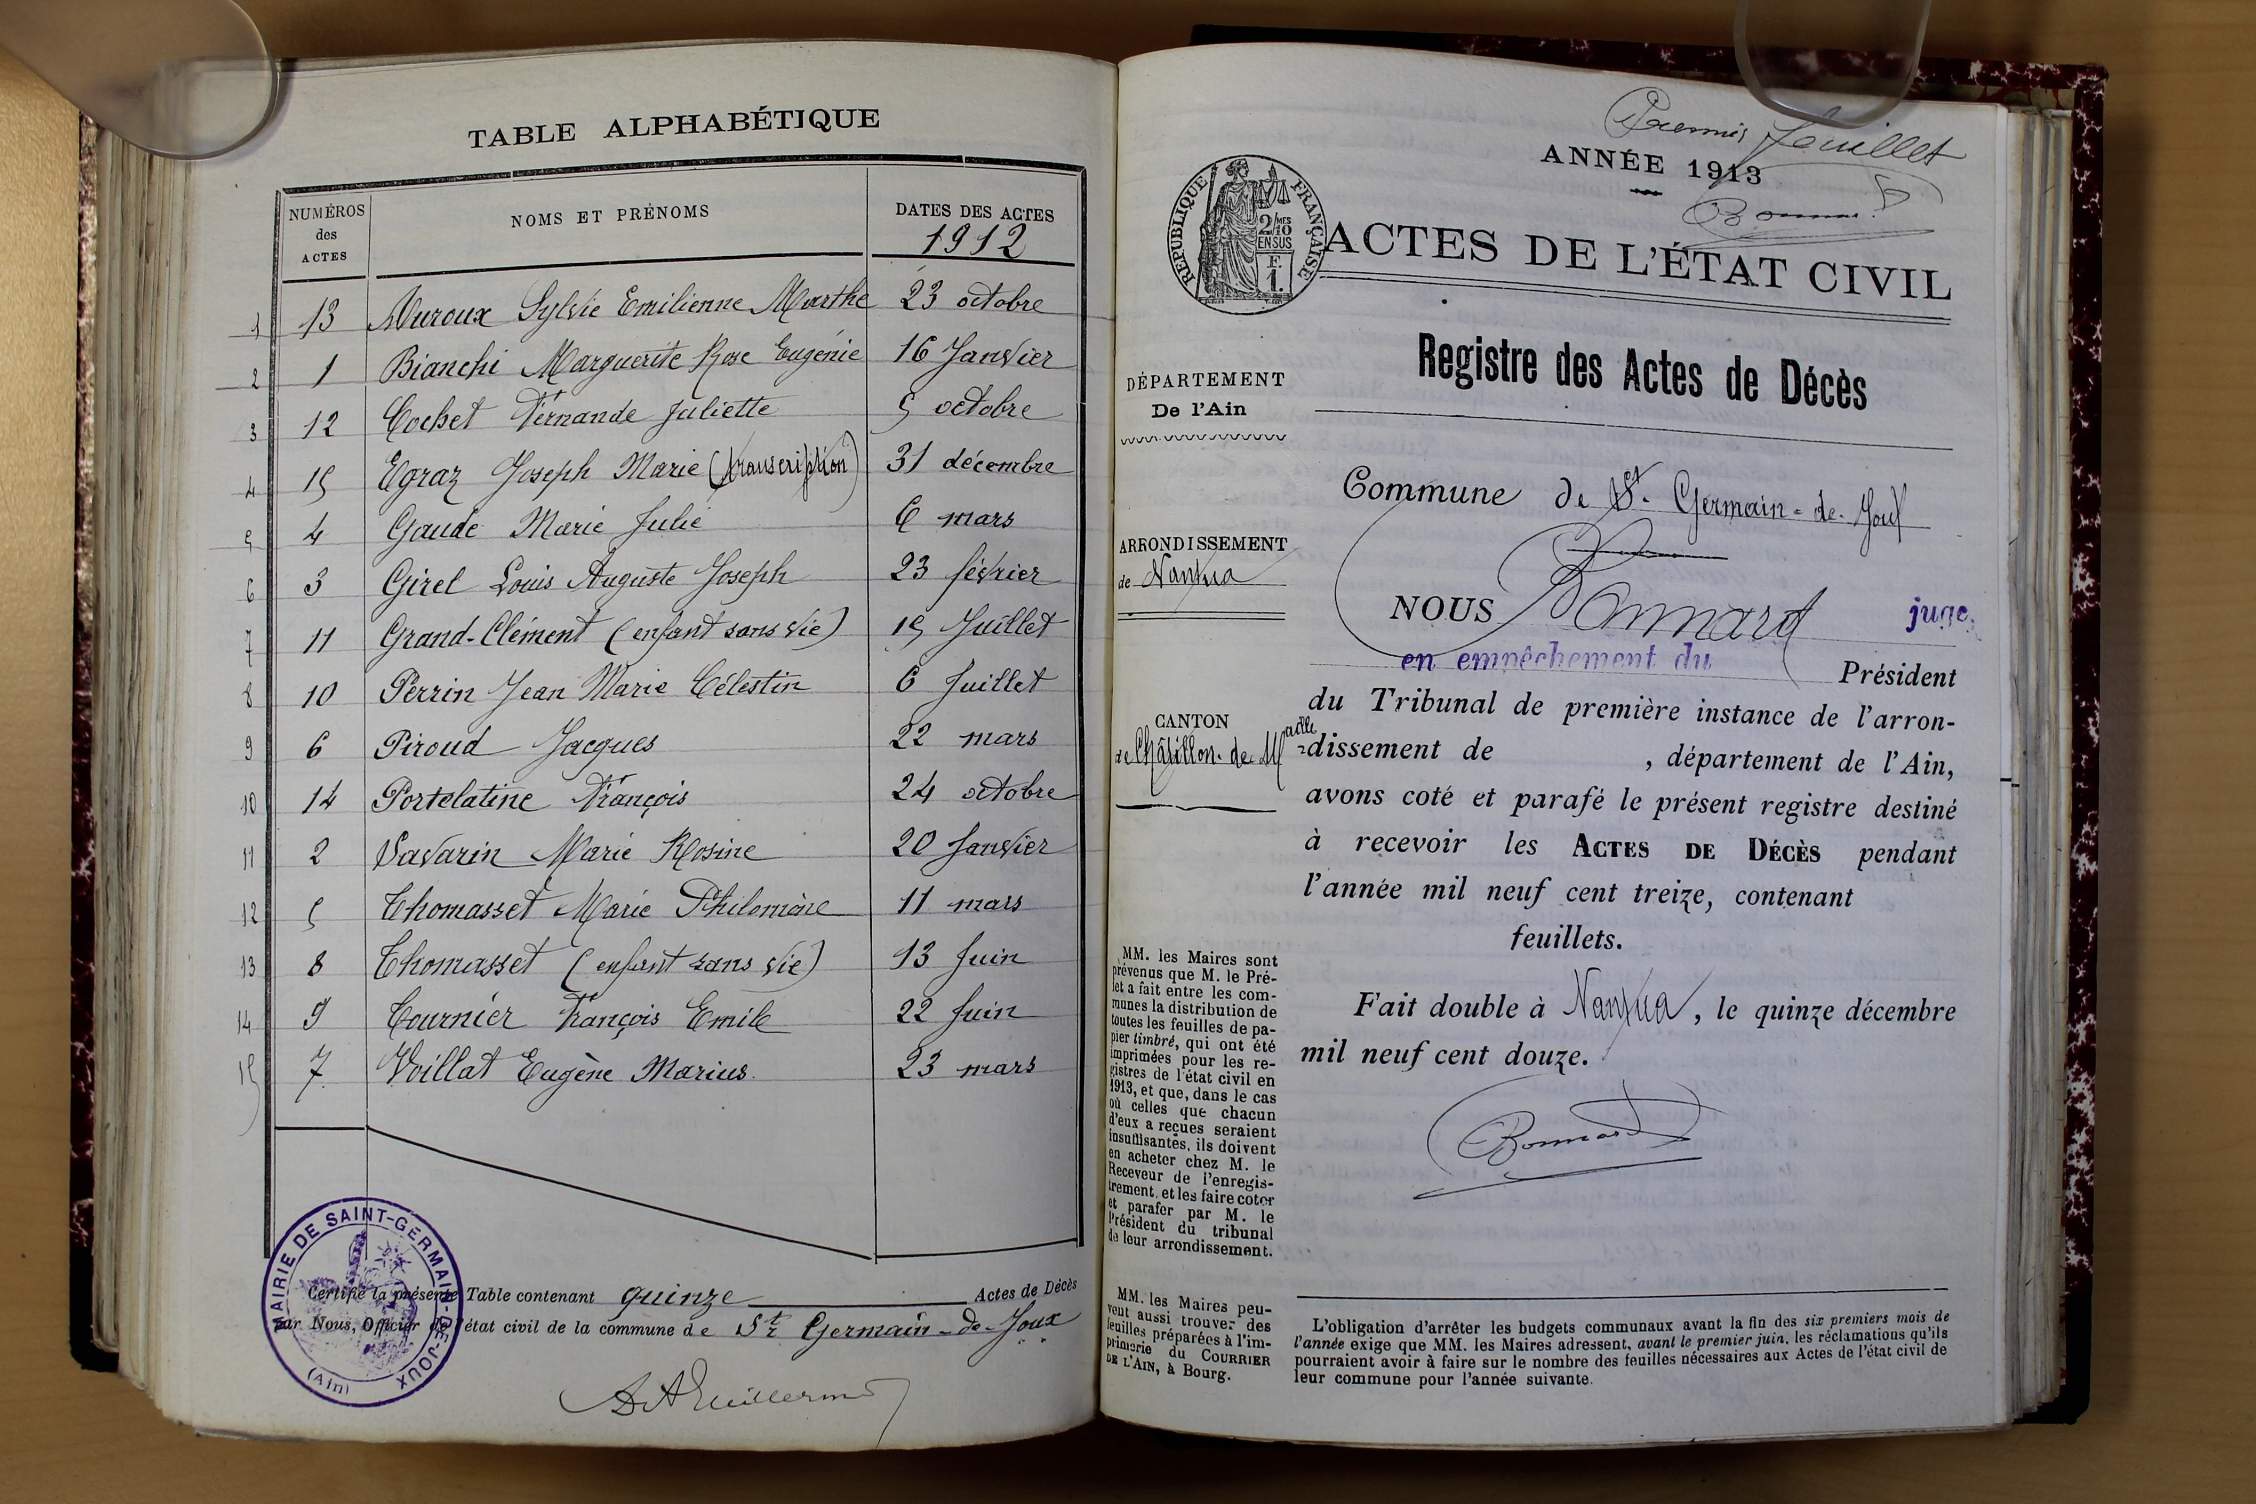 TABLE ALPHABÉTIQUE
NUMÉROS des ACTES NOMS ET PRÉNOMS DATES DES ACTES
1912
1 13 Muroux Sylvie Emilienne Marthe 23 octobre
2 1 Bianchi Marguerite Rose Eugénie 16 Janvier
3 12 Cochet Fernande Juliette 5 octobre
4 15 Egraz Joseph Marie (transcription) 31 décembre
5 4 Gaude Marie Julie 6 mars
6 3 Girel Louis Auguste Joseph 23 février
7 11 Grand-Clément (enfant sans vie) 15 Juillet
8 10 Perrin Jean Marie Célestin 6 Juillet
9 6 Piroud Jacques 22 mars
10 14 Portelatine François 24 octobre
11 2 Savarin Marie Rosine 20 Janvier
12 5 Thomasset Marie Philomène 11 mars
13 8 Thomasset (enfant sans vie) 13 Juin
14 9 Tournier François Emile 22 Juin
15 7 Voillat Eugène Marius 23 mars
Certifié la présente Table contenant quinze Actes de Décès
par Nous, Officier de l'état civil de la commune de St Germain-de-Joux
MAIRIE DE SAINT-GERMAIN-DE-JOUX
(Ain)
Premier feuillet
ANNÉE 1913
Bonnard
RÉPUBLIQUE FRANÇAISE
2/10 MES
EN SUS
F.
1.
ACTES DE L'ÉTAT CIVIL
Registre des Actes de Décès
DÉPARTEMENT
De l'Ain
ARRONDISSEMENT
de Nantua
CANTON
de Châtillon-de-Mlle
MM. les Maires sont
prévenus que M. le Pré-
fet a fait entre les com-
munes la distribution de
toutes les feuilles de pa-
pier timbré, qui ont été
imprimées pour les re-
gistres de l'état civil en
1913, et que, dans le cas
où celles que chacun
d'eux a reçues seraient
insuffisantes, ils doivent
en acheter chez M. le
Receveur de l'enregis-
trement, et les faire coter
et parafer par M. le
Président du tribunal
de leur arrondissement.
MM. les Maires peu-
vent aussi trouver des
feuilles préparées à l'im-
primerie du COURRIER
DE L'AIN, à Bourg.
Commune de St. Germain-de-Joux
NOUS Bonnard juge
en empêchement du Président
du Tribunal de première instance de l'arron-
dissement de , département de l'Ain,
avons coté et parafé le présent registre destiné
à recevoir les ACTES DE DÉCÈS pendant
l'année mil neuf cent treize, contenant
feuillets.
Fait double à Nantua, le quinze décembre
mil neuf cent douze.
Bonnard
L'obligation d'arrêter les budgets communaux avant la fin des six premiers mois de
l'année exige que MM. les Maires adressent, avant le premier juin, les réclamations qu'ils
pourraient avoir à faire sur le nombre des feuilles nécessaires aux Actes de l'état civil de
leur commune pour l'année suivante.